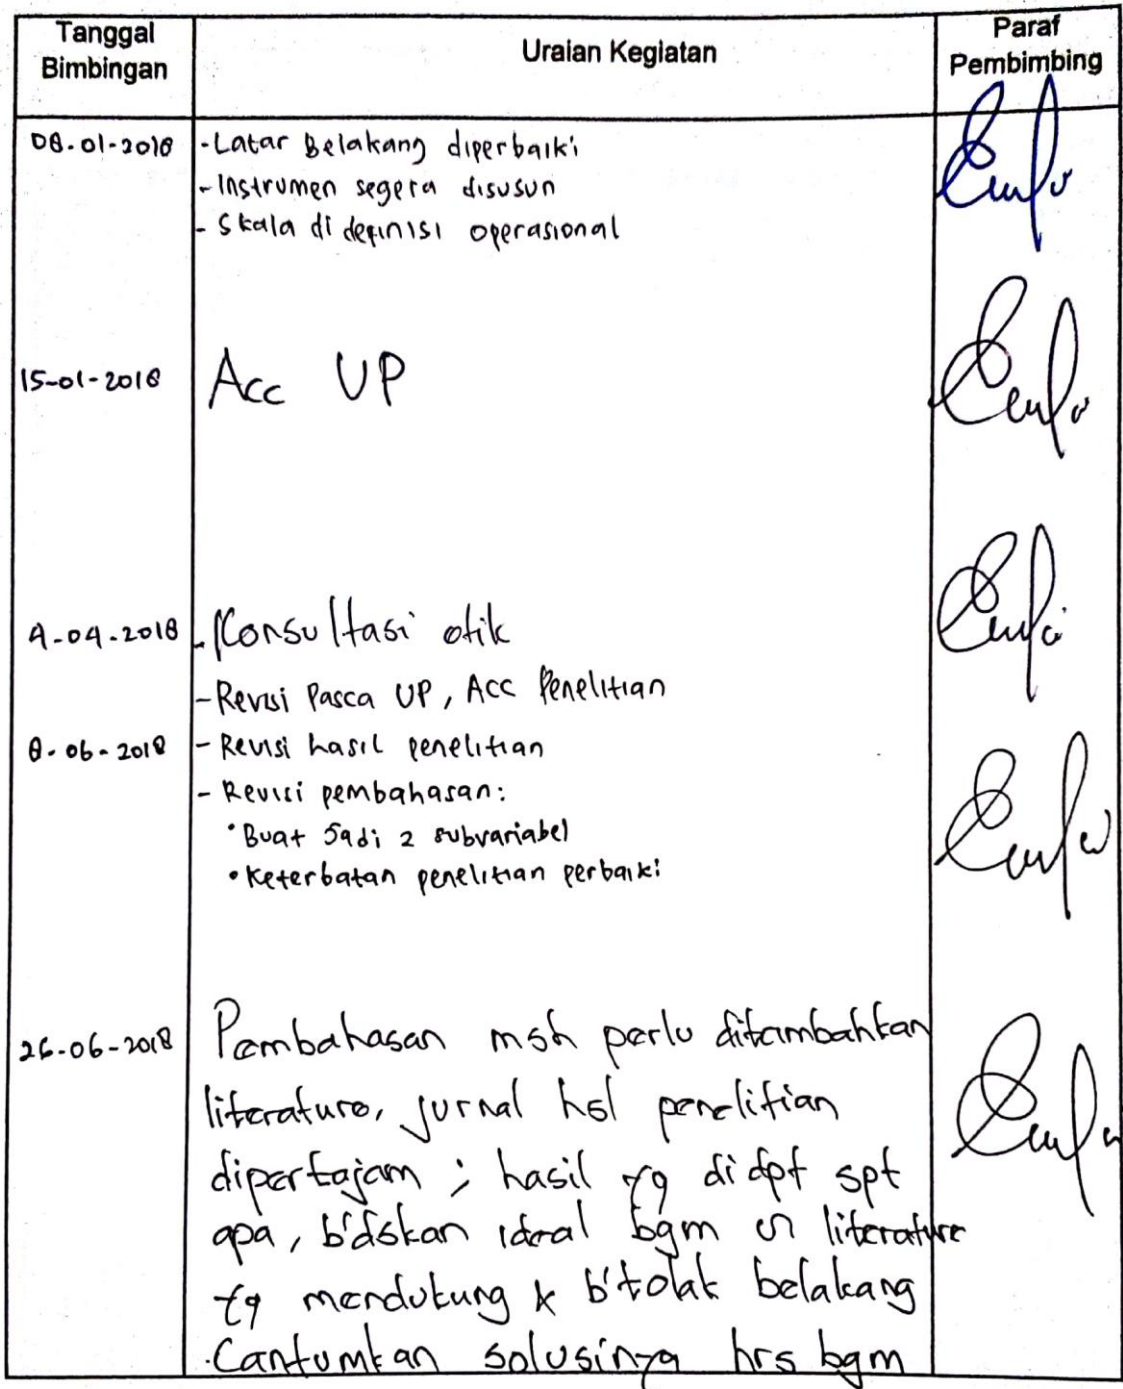 Tanggal Bimbingan
Uraian Kegiatan
Paraf Pembimbing
08-01-2018
-Latar Belakang diperbaiki
-Instrumen segera disusun
-Skala di definisi operasional
15-01-2018
Acc UP
4-04-2018
-Konsultasi etik
-Revisi Pasca UP, Acc Penelitian
8-06-2018
-Revisi hasil penelitian
-Revisi pembahasan:
•Buat Jadi 2 subvariabel
•Keterbatan penelitian perbaiki
26-06-2018
Pembahasan msh perlu ditambahkan
literature, jurnal hsl penelitian
dipertajam ; hasil yg di dpt spt
apa, b'dskan ideal bgm literature
yg mendukung & b'tolak belakang
Cantumkan solusinya hrs bgm